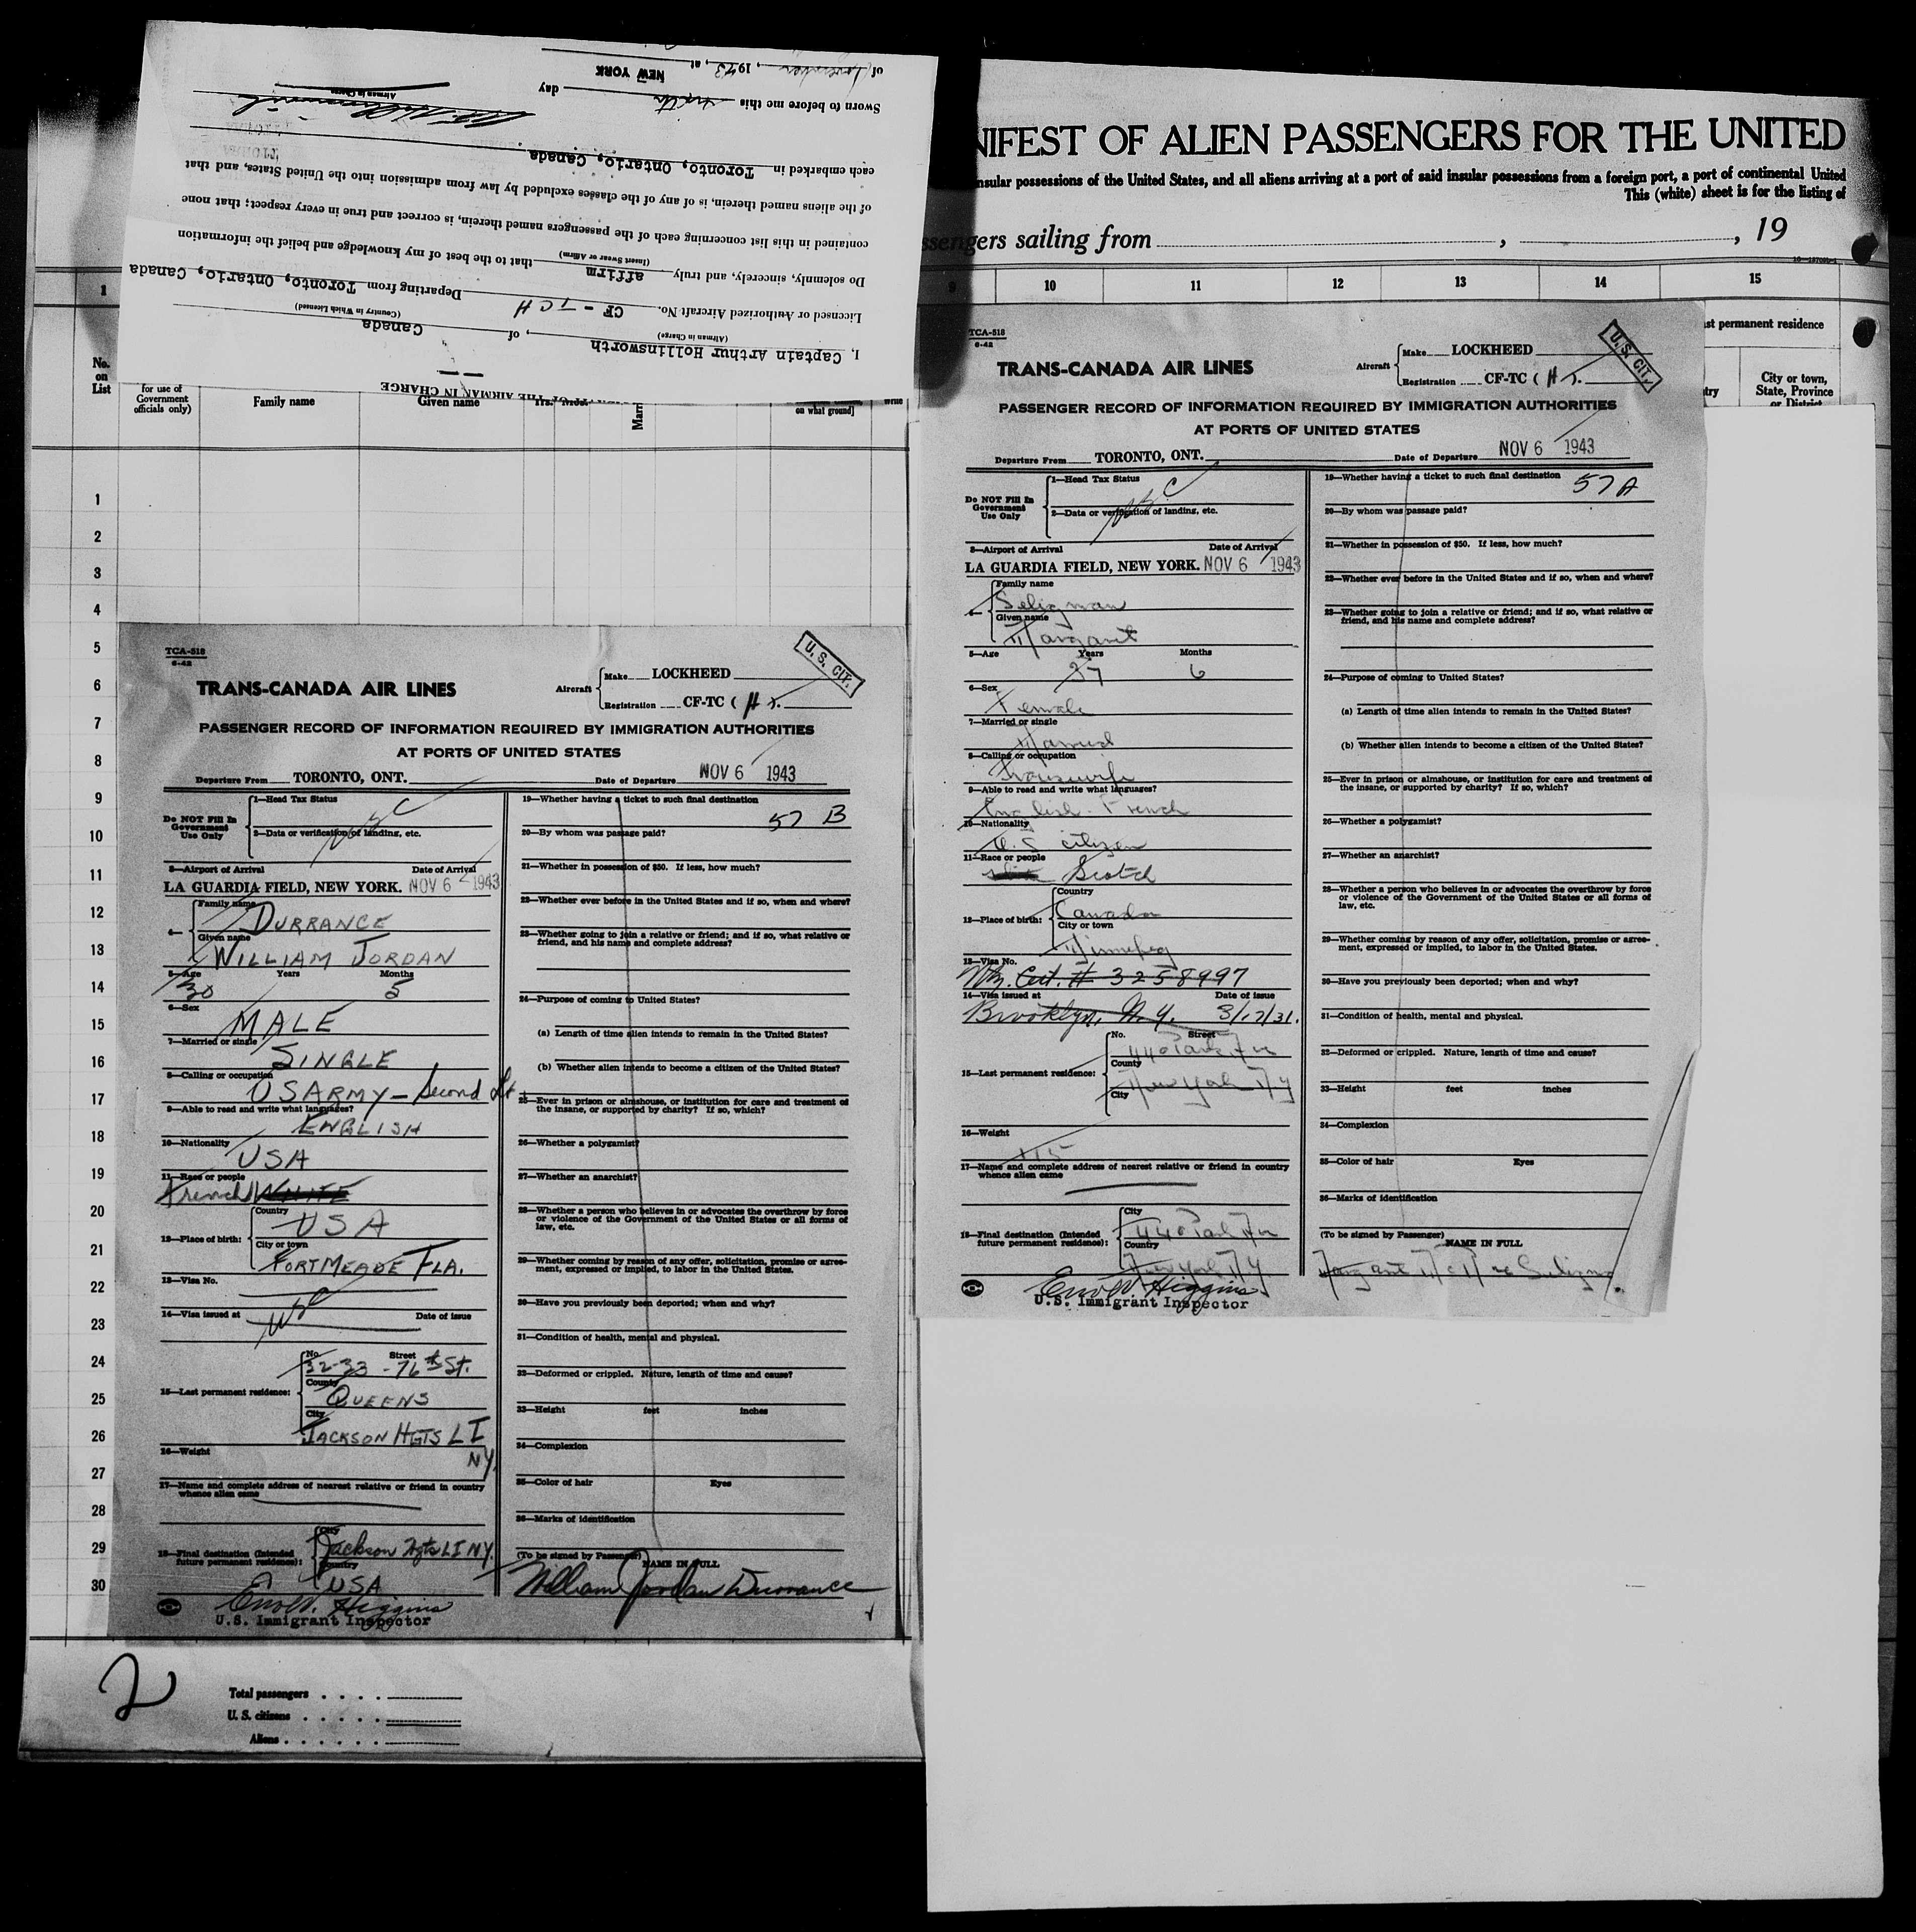 of November, 1943, at NEW YORK
Sworn to before me this sixth day
Airman in Charge
each embarked in Toronto, Ontario, Canada.
of the aliens named therein, is of any of the classes excluded by law from admission into the United States, and that
contained in this list concerning each of the passengers named therein, is correct and true in every respect; that none
Do solemnly, sincerely, and truly affirm that to the best of my knowledge and belief the information
(Insert Swear or Affirm)
Licensed or Authorized Aircraft No. CF - TCH Departing from Toronto, Ontario, Canada
(Airman in Charge) (Country in Which Licensed)
I, Captain Arthur Hollinsworth, of Canada
OF THE AIRMAN IN CHARGE
1
No.
on
List
for use of
Government
officials only)
Family name
Given name
Yrs.
Marri
on what ground]
write
1
2
3
4
5
6
7
8
9
10
11
12
13
14
15
16
17
18
19
20
21
22
23
24
25
26
27
28
29
30
TCA-518
6-42
U.S. CIT.
TRANS-CANADA AIR LINES
Aircraft
Make LOCKHEED
Registration CF-TC ( H ).
PASSENGER RECORD OF INFORMATION REQUIRED BY IMMIGRATION AUTHORITIES
AT PORTS OF UNITED STATES
Departure From TORONTO, ONT. Date of Departure NOV 6 1943
Do NOT Fill In
Government
Use Only
1—Head Tax Status
USC
2—Data or verification of landing, etc.
3—Airport of Arrival Date of Arrival
LA GUARDIA FIELD, NEW YORK. NOV 6 1943
4—
Family name
DURRANCE
Given name
WILLIAM JORDAN
5—Age Years Months
30 5
6—Sex
MALE
7—Married or single
SINGLE
8—Calling or occupation
US ARMY — Second Lt
9—Able to read and write what languages?
ENGLISH
10—Nationality
USA
11—Race or people
French WHITE
12—Place of birth:
Country
USA
City or town
FORT MEADE FLA.
13—Visa No.
14—Visa issued at Date of issue
15—Last permanent residence:
No. Street
32-33 - 76th St.
County
QUEENS
City
JACKSON HGTS L I
NY.
16—Weight
17—Name and complete address of nearest relative or friend in country
whence alien came
18—Final destination (Intended
future permanent residence):
City
Jackson Hgts L I N.Y.
Country
USA
Eno W. Higgins
U.S. Immigrant Inspector
19—Whether having a ticket to such final destination
57 B
20—By whom was passage paid?
21—Whether in possession of $50. If less, how much?
22—Whether ever before in the United States and if so, when and where?
23—Whether going to join a relative or friend; and if so, what relative or
friend, and his name and complete address?
24—Purpose of coming to United States?
(a) Length of time alien intends to remain in the United States?
(b) Whether alien intends to become a citizen of the United States?
25—Ever in prison or almshouse, or institution for care and treatment of
the insane, or supported by charity? If so, which?
26—Whether a polygamist?
27—Whether an anarchist?
28—Whether a person who believes in or advocates the overthrow by force
or violence of the Government of the United States or all forms of
law, etc.
29—Whether coming by reason of any offer, solicitation, promise or agree-
ment, expressed or implied, to labor in the United States.
30—Have you previously been deported; when and why?
31—Condition of health, mental and physical.
32—Deformed or crippled. Nature, length of time and cause?
33—Height feet inches
34—Complexion
35—Color of hair Eyes
36—Marks of identification
(To be signed by Passenger)
NAME IN FULL
William Jordan Durrance
2
Total passengers
U. S. citizens
Aliens
NIFEST OF ALIEN PASSENGERS FOR THE UNITED
insular possessions of the United States, and all aliens arriving at a port of said insular possessions from a foreign port, a port of continental United
This (white) sheet is for the listing of
ssengers sailing from , , 19
9 10 11 12 13 14 15
st permanent residence
try
City or town,
State, Province
or District
TCA-518
6-42
U.S. CIT.
TRANS-CANADA AIR LINES
Aircraft
Make LOCKHEED
Registration CF-TC ( H ).
PASSENGER RECORD OF INFORMATION REQUIRED BY IMMIGRATION AUTHORITIES
AT PORTS OF UNITED STATES
Departure From TORONTO, ONT. Date of Departure NOV 6 1943
Do NOT Fill In
Government
Use Only
1—Head Tax Status
USC
2—Data or verification of landing, etc.
3—Airport of Arrival Date of Arrival
LA GUARDIA FIELD, NEW YORK. NOV 6 1943
4—
Family name
Seligman
Given name
Margaret
5—Age Years Months
37 6
6—Sex
Female
7—Married or single
Married
8—Calling or occupation
Housewife
9—Able to read and write what languages?
English - French
10—Nationality
U.S citizen
11—Race or people
Scotch
12—Place of birth:
Country
Canada
City or town
Winnipeg
13—Visa No.
Ntz. Cert. # 3258997
14—Visa issued at Date of issue
Brooklyn, N.Y. 3/17/31.
15—Last permanent residence:
No. Street
440 Park Ave
County
New York N Y
City
16—Weight
115
17—Name and complete address of nearest relative or friend in country
whence alien came
18—Final destination (Intended
future permanent residence):
City
440 Park Ave
Country
New York N Y.
Eno W. Higgins
U.S. Immigrant Inspector
19—Whether having a ticket to such final destination
57 A
20—By whom was passage paid?
21—Whether in possession of $50. If less, how much?
22—Whether ever before in the United States and if so, when and where?
23—Whether going to join a relative or friend; and if so, what relative or
friend, and his name and complete address?
24—Purpose of coming to United States?
(a) Length of time alien intends to remain in the United States?
(b) Whether alien intends to become a citizen of the United States?
25—Ever in prison or almshouse, or institution for care and treatment of
the insane, or supported by charity? If so, which?
26—Whether a polygamist?
27—Whether an anarchist?
28—Whether a person who believes in or advocates the overthrow by force
or violence of the Government of the United States or all forms of
law, etc.
29—Whether coming by reason of any offer, solicitation, promise or agree-
ment, expressed or implied, to labor in the United States.
30—Have you previously been deported; when and why?
31—Condition of health, mental and physical.
32—Deformed or crippled. Nature, length of time and cause?
33—Height feet inches
34—Complexion
35—Color of hair Eyes
36—Marks of identification
(To be signed by Passenger)
NAME IN FULL
Margaret Seligman